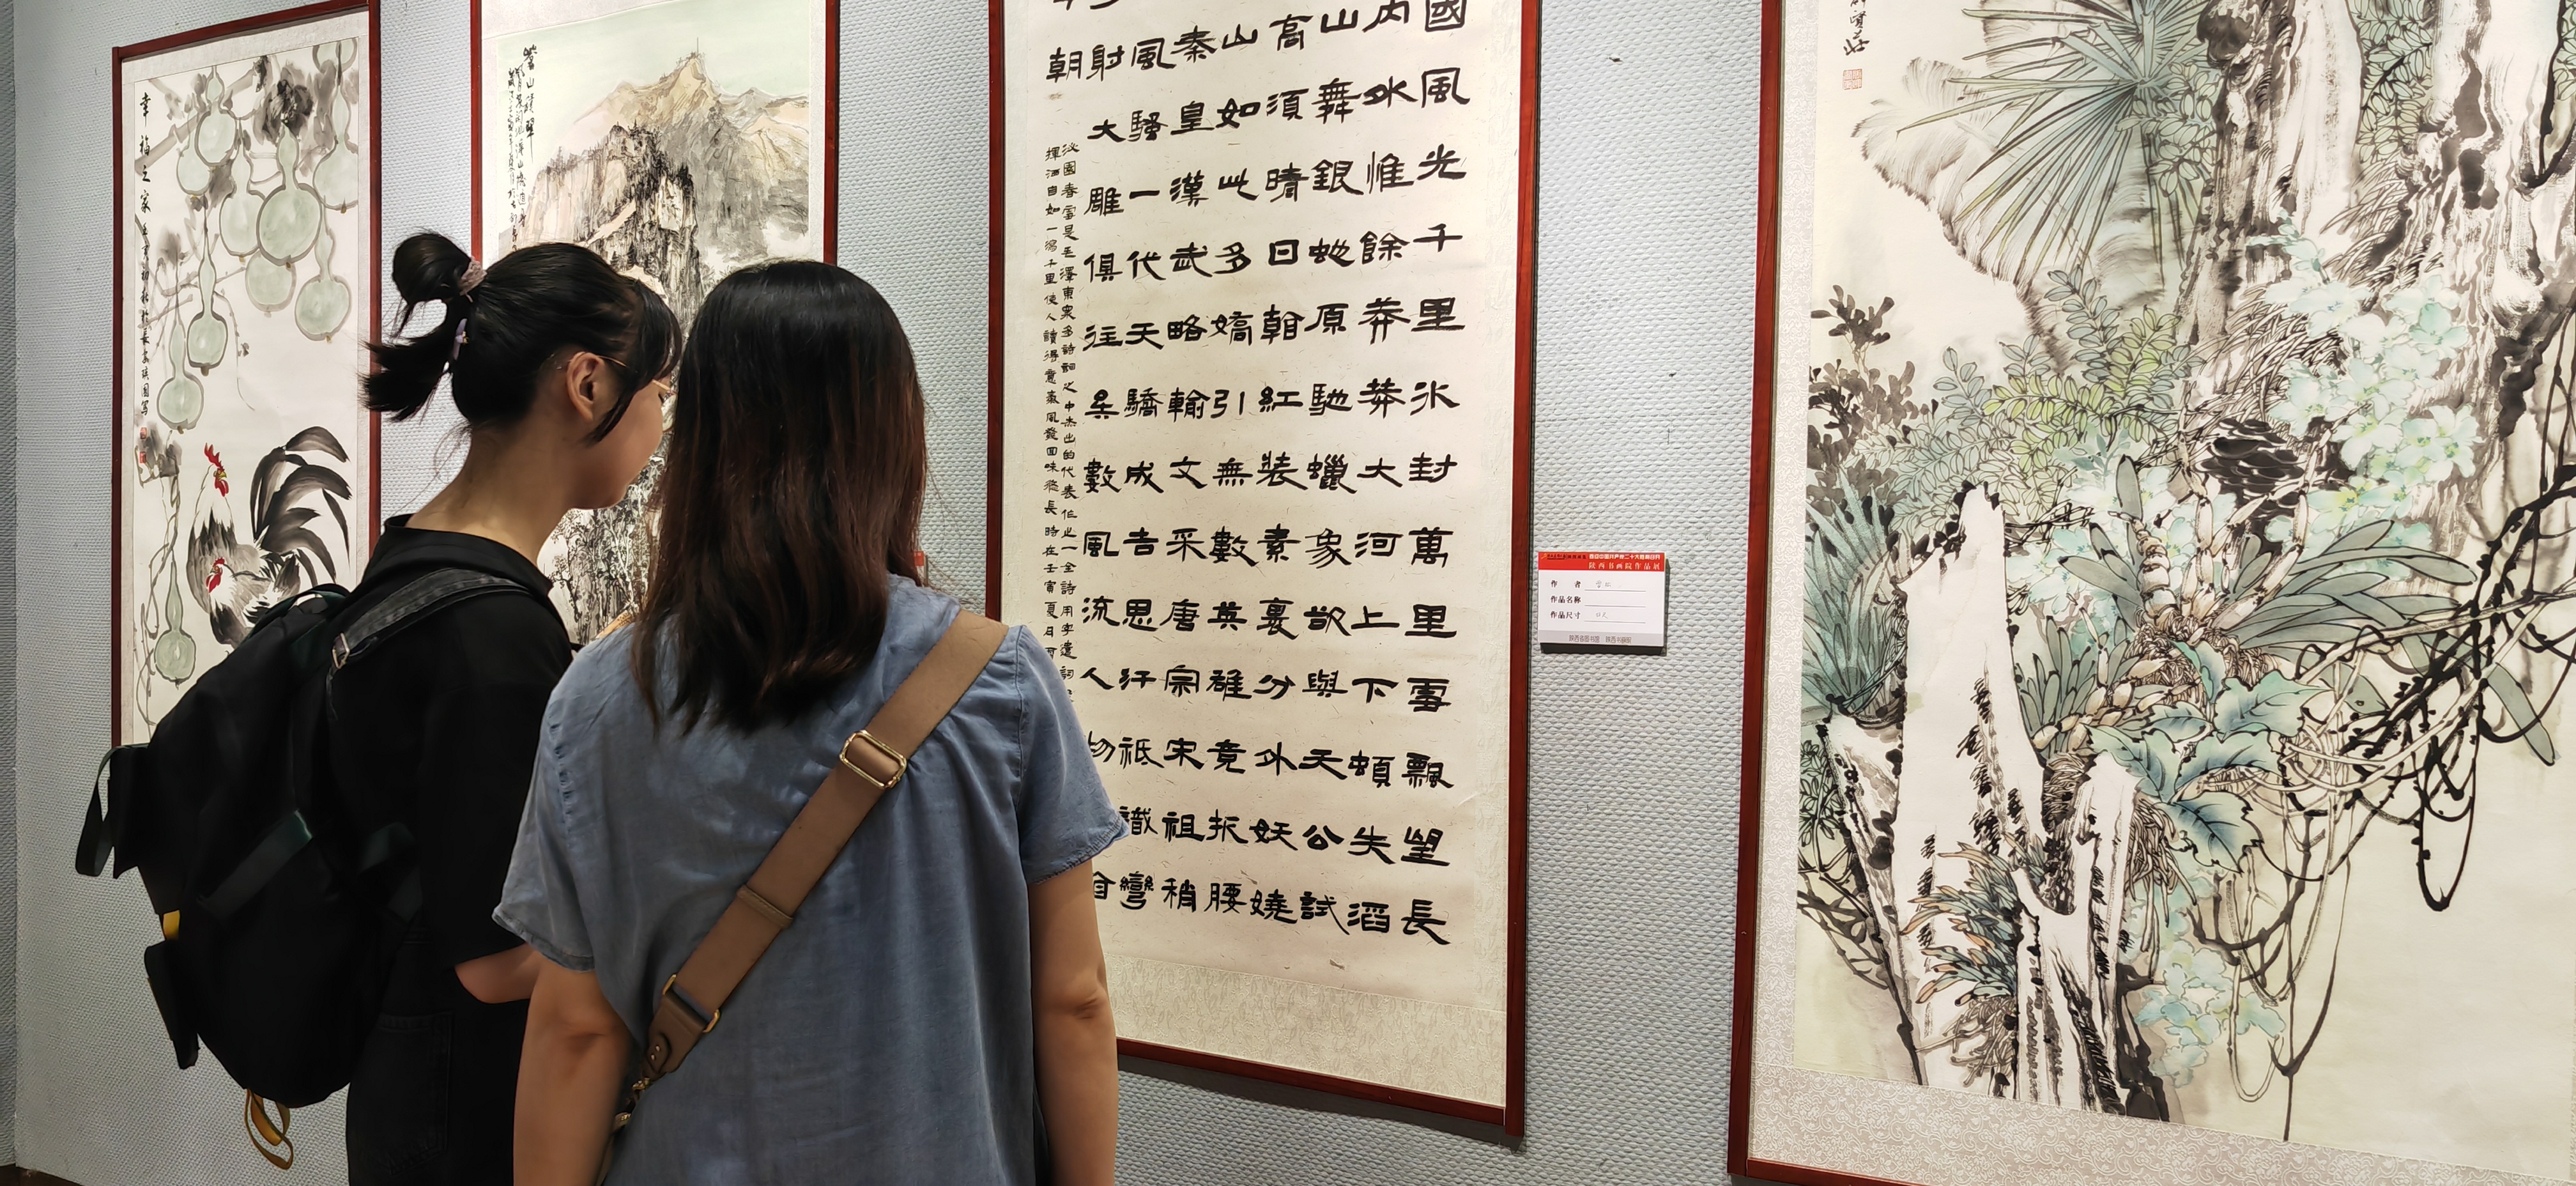 國風光千里冰封萬里雪飄望長
内外惟餘莽莽大河上下頓失滔
山舞銀蛇原馳蠟象欲與天公試
高須晴日看紅裝素裹分外妖嬈
山如此多嬌引無數英雄竟折腰
秦皇漢武略輸文采唐宗宋祖稍
風騷一代天驕成吉思汗祇識彎
射大雕俱往矣數風流人物
朝
沁園春雪是毛澤東衆多詩詞之中杰出的代表作此一全詩用字遣詞
揮洒自如一瀉千里使人讀得意氣風發回味悠長時在壬寅夏月
喜迎中国共产党二十大胜利召开
陕西书画院作品展
作者
作品名称
作品尺寸
陕西省图书馆 陕西书画院
幸福之家